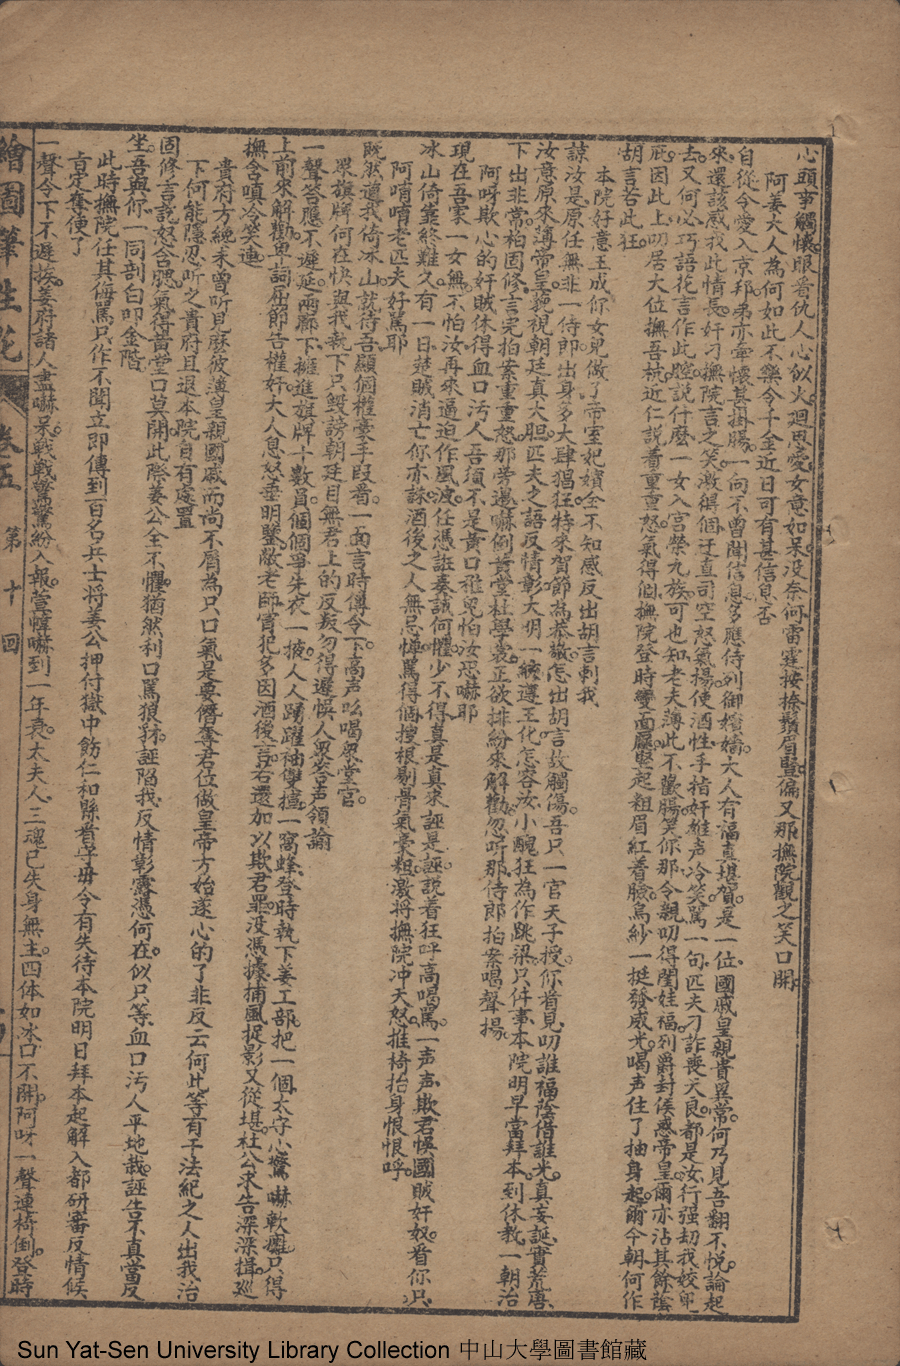 心頭事觸懷眼看仇人心似火迴思愛女意如呆没奈何雷霆按捺鬚眉豎偏又那撫院觀之笑口開
阿姜大人為何如此不樂令千金近日可有甚信息否
自從令愛入京邦弟亦牽懷甚掛腸一向不曾聞信息多應侍列御嬪嬙大人有福真堪賀是一位國戚皇親貴異常何乃見吾翻不悅論起
來還該感我此情長奸刁撫院言之笑激得個迂直司空怒氣揚使酒性手指奸雄声冷笑罵一句匹夫刁詐喪天良都是汝行强刧我姣兒
去又何必巧語花言作此腔説什麽一女入宮榮九族可也知老夫薄此不歡腸哭你那令親叨得閨娃福列爵封侯惑帝皇爾亦沾其餘蔭
庇因此上叨居大位撫吾杭近仁説着重重怒氣得個撫院登時變面龐豎起粗眉紅着臉烏紗一挺發威光喝声住了抽身起爾今朝何作
胡言若此狂
本院好意玉成你女兒做了帝室妃嬪全不知感反出胡言刺我
諒汝是原任無非一侍郎出身多大肆猖狂特來賀節爲恭敬怎出胡言故觸傷吾只一官天子授你看見叨誰福蔭借誰光真妄誕實荒唐
汝意原來薄帝皇藐視朝廷真大胆匹夫之語反情彰大明一統遵王化怎容汝小醜狂為作跳梁只件事本院明早當拜本到休教一朝治
下出非常柏固修言完拍案重重怒那旁邊嚇倒黃堂杜學裳正欲排紛來解勸忽听那侍郎拍案喝聲揚
阿呀欺心的奸賊休得血口汚人吾須不是黄口稚兒怕汝恐嚇耶
現在吾家一女無不怕汝再來逼迫作風波任憑誑奏該何懼少不得真是真來誣是誣説着狂呼高喝罵一声声欺君悞國賊奸奴看你只
冰山倚靠終難久有一日楚賊消亡你亦誅酒後之人無忌憚罵得個搜根剔骨氣豪粗激將撫院冲天怒推椅抬身恨恨呼
阿唷唷老匹夫好罵耶
既然道我倚冰山就待吾顯個權豪手段看一面言時傳令下高声吆喝衆堂官
眾旗牌何在快與我執下只毁謗朝廷目無君上的反叛勿得遲悞人衆答声領諭
一聲答應不遲延兩廊下擁進旗牌十數員個個爭先衣一掖人人踴躍袖雙揎一窩蜂登時執下姜工部把一個太守小驚嚇軟癱只得
上前來解勸卑詞屈節告權奸大人息怒垂明鑒敝老師嘗犯多因酒後言若還加以欺君罪没憑據捕風捉影又從堪杜公求告深深揖巡
撫含嗔冷笑連
貴府方纔未曾听見麽彼薄皇親國戚而尚不屑為只口氣是要僭奪君位做皇帝方始遂心的了非反云何此等有干法紀之人出我治
下何能隱忍听之貴府且退本院自有處置
固修言説怒含腮氣得黃堂口莫開此際姜公全不懼猶然利口罵狼豺誣陷我反情彰露憑何在似只等血口汚人平地哉誣告不真當反
坐吾與你一同剖白叩金階
此時撫院任其侮罵只作不聞立即傳到一百名兵士將姜公押付獄中飭仁和縣看守毋令有失待本院明日拜本起解入都研審反情候
肯定奪便了
一聲令下不遲挨姜府諸人盡嚇呆戰戰驚驚紛入報萱幃嚇到一年衰太夫人三魂已失身無主四体如冰口不開阿呀一聲連椅倒登時
繪圖筆生花 卷五 第十回
Sun Yat-Sen University Library Collection 中山大學圖書館藏